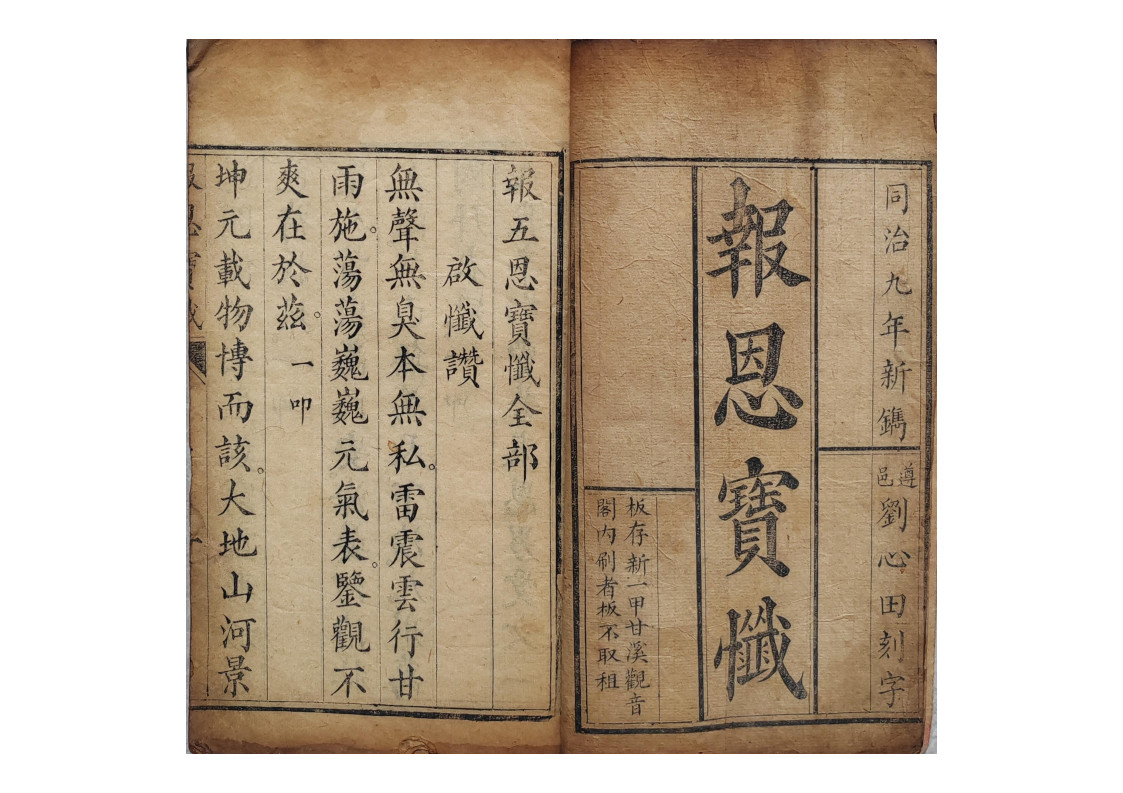 同治九年新鐫
遵邑劉心田刻字
報恩寶懺
板存新一甲甘溪觀音
閣内刷者板不取租
報五恩寶懺全部
啟懺讚
無聲無臭本無私。雷震雲行甘
雨施。蕩蕩巍巍元氣表。鑒觀不
爽在於茲。一叩
坤元載物博而該。大地山河景